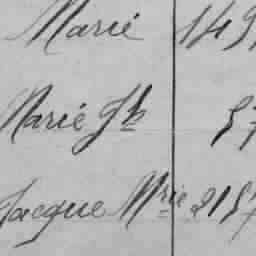 Marie 149
Marie Jh 57
Jacque Mrie 2157